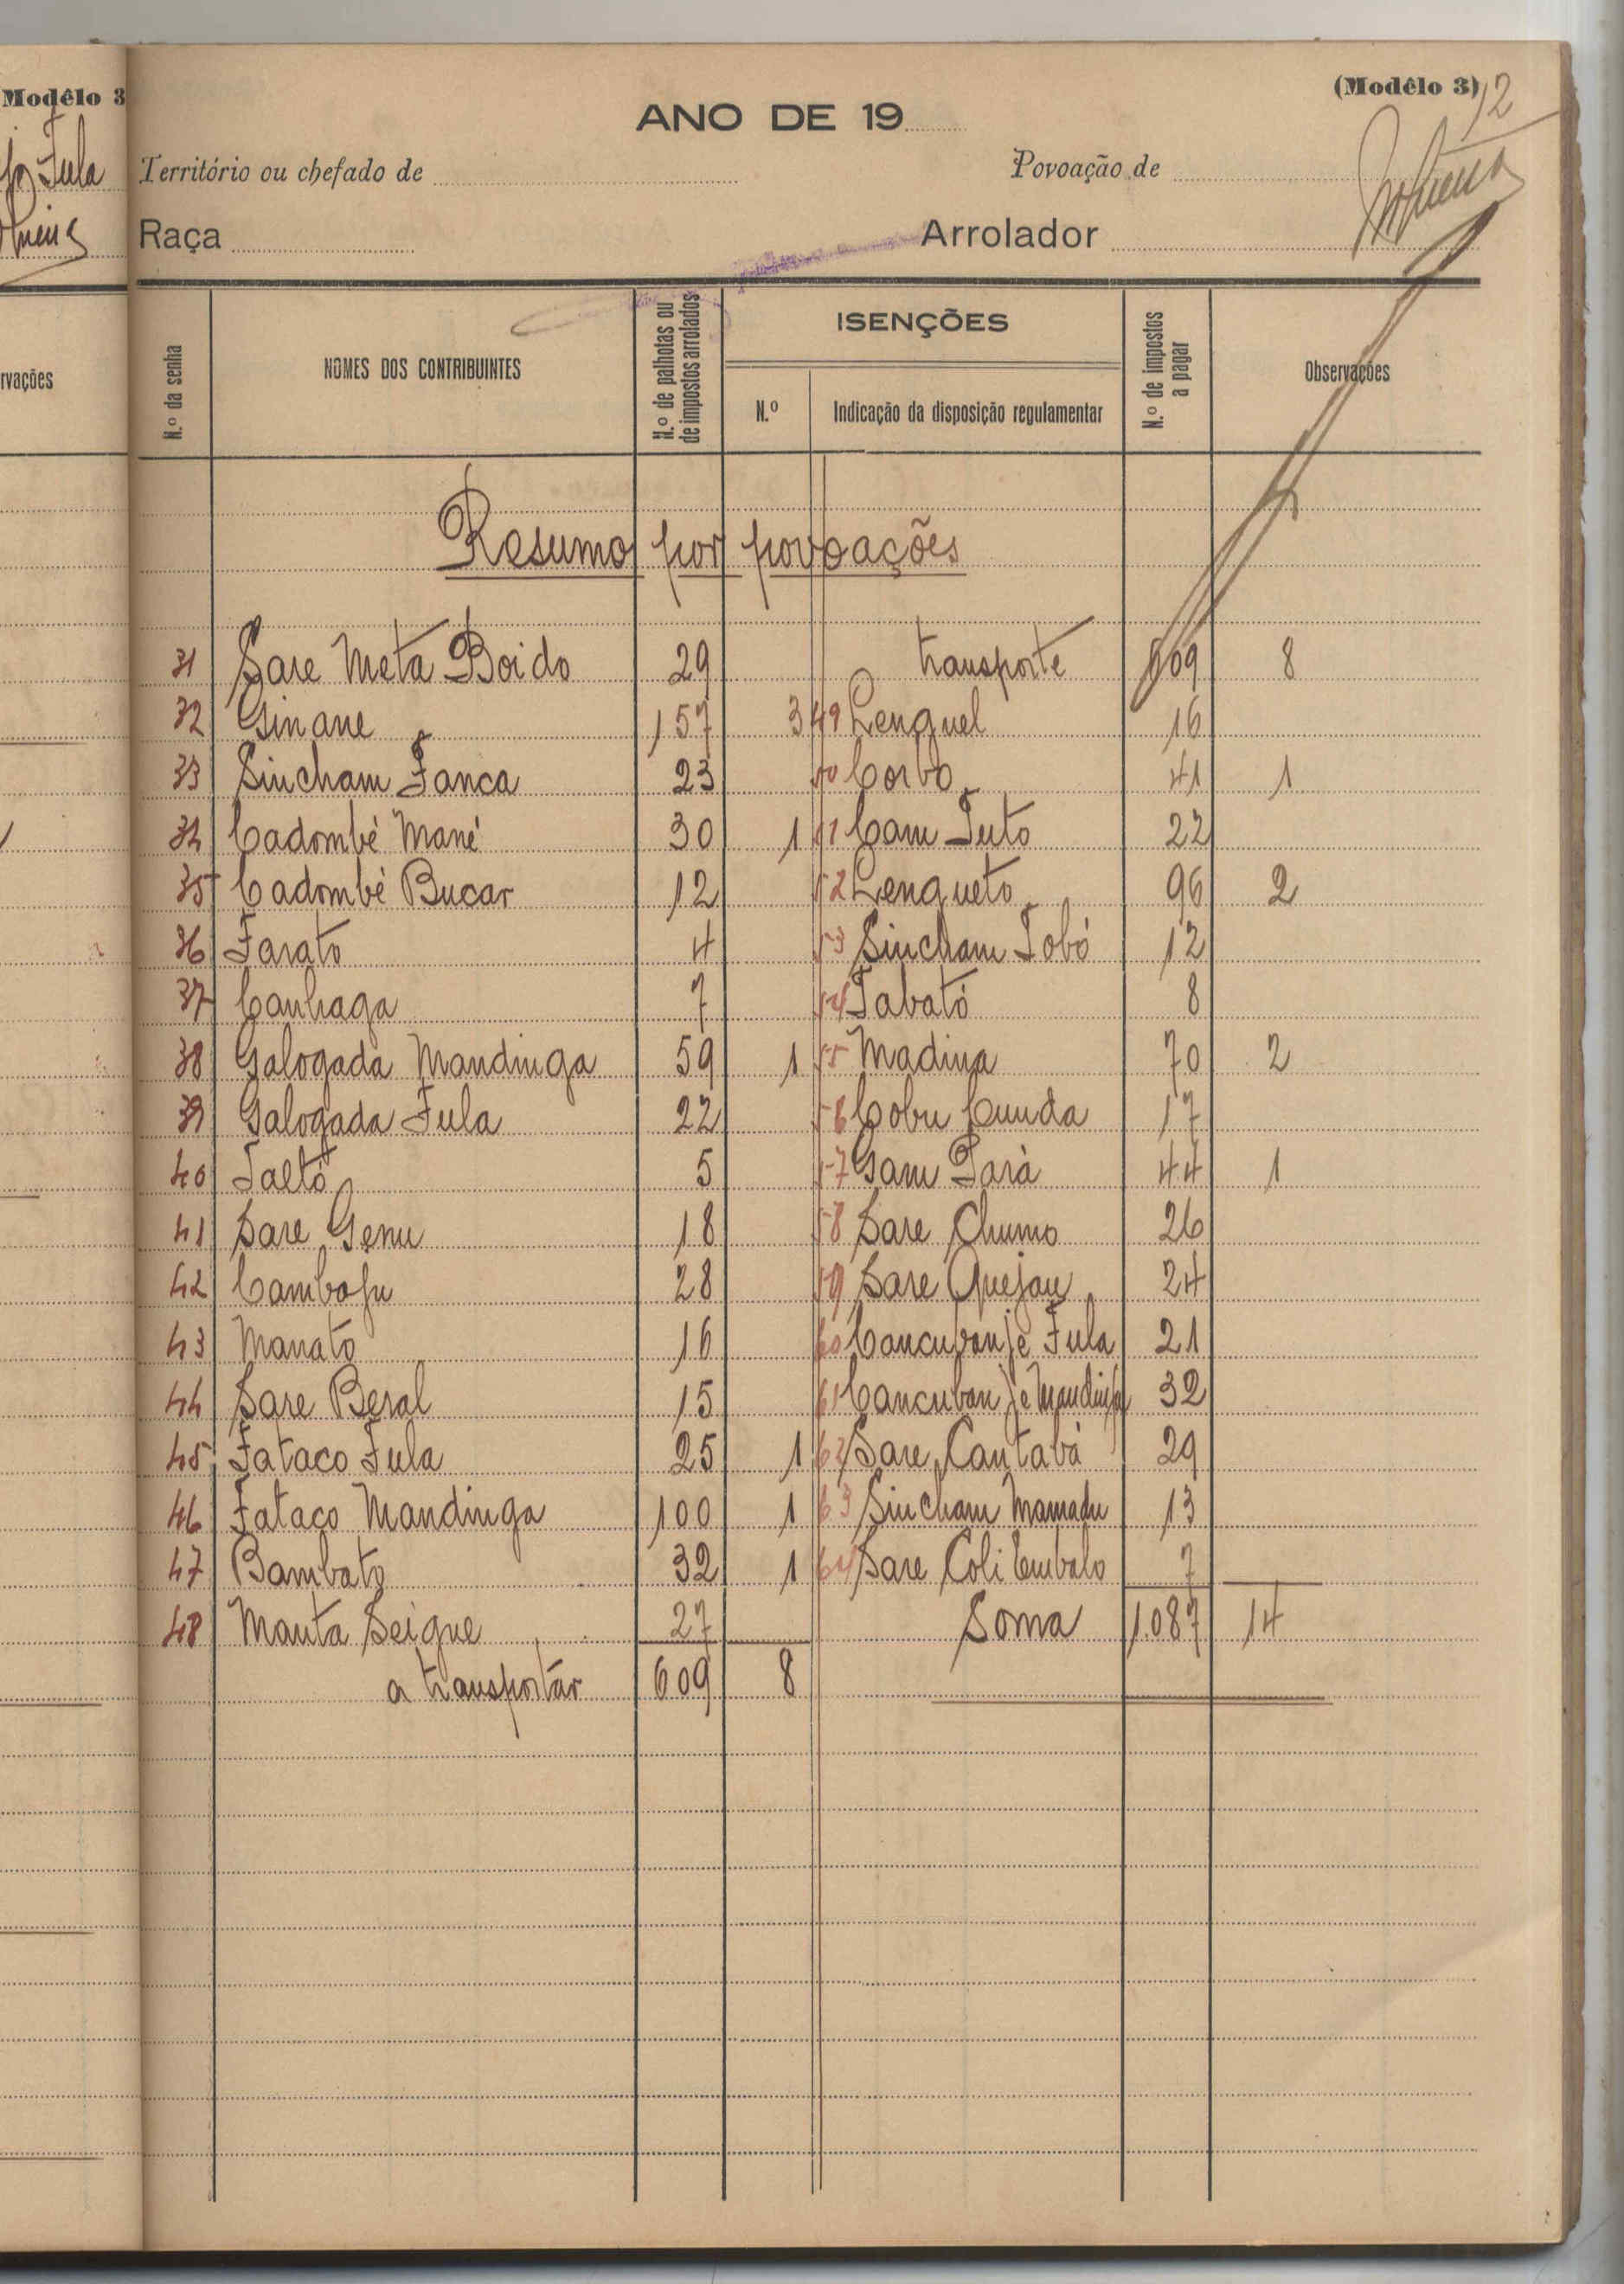 Modêlo 3
Fula
rvações
(Modêlo 3)
12
ANO DE 19
Território ou chefado de
Povoação de
Raça
Arrolador
N.º da senha
NOMES DOS CONTRIBUINTES
N.º de palhotas ou de impostos arrolados
ISENÇÕES
N.º
Indicação da disposição regulamentar
N.º de impostos a pagar
Observações
Resumo por povoações
31 Sare Meta Boido 29 transporte 609 8
32 Ginane 157 3 49 Lenguel 16
33 Sincham Fanca 23 50 Corbo 41 1
34 Cadombé Mané 30 1 51 Cam Tuto 22
35 Cadombé Bucar 12 52 Lengueto 96 2
36 Farato 4 53 Sincham Tobó 12
37 Canhaga 7 54 Tabató 8
38 Galogada Mandinga 59 1 55 Madina 70 2
39 Galogada Fula 22 56 Cobu Cunda 17
40 Taeto 5 57 Gam Pará 44 1
41 Sare Genu 18 58 Sare Chumo 26
42 Cambaju 28 59 Sare Quejau 24
43 Manato 16 60 Cancubanje Fula 21
44 Sare Beral 15 61 Cancubanje Mandinga 32
45 Fataco Fula 25 1 62 Sare Cantabá 29
46 Fataco Mandinga 100 1 63 Sincham Mamadu 13
47 Bambato 32 1 64 Sare Coli Embalo 7
48 Manta Seigue 27 Soma 1.087 14
a transportar 609 8